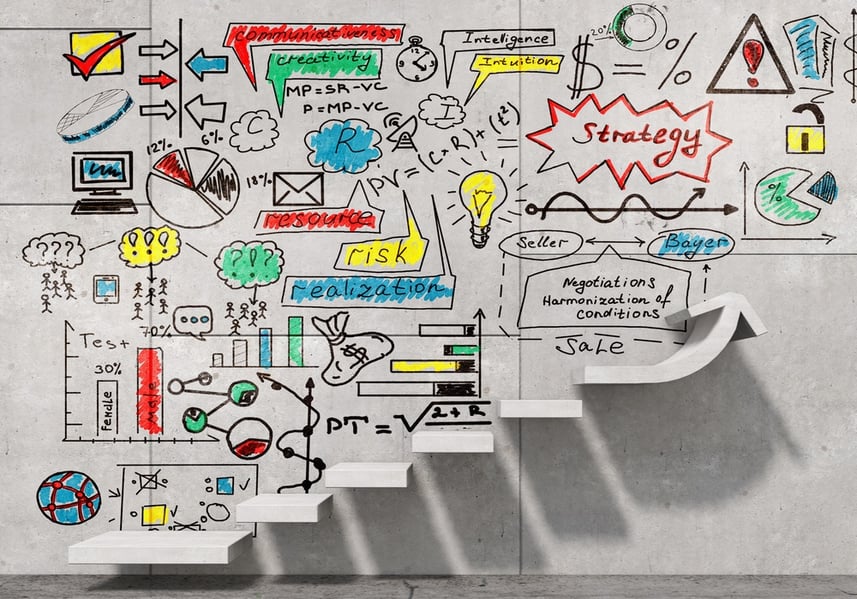 communicativeness
creativity
Intelligence
Intuition
20%
$ = %
MP=SR-VC
P=MP-VC
C
I
R
PV=(C+R)+(t²)
=
Strategy
12%
6%
18%
%
resource
risk
realization
???
???
?!?
Seller
Bayer
Negotiations
Harmonization of
conditions
Sale
Test
70%
30%
female
male
$
PT=√2+R